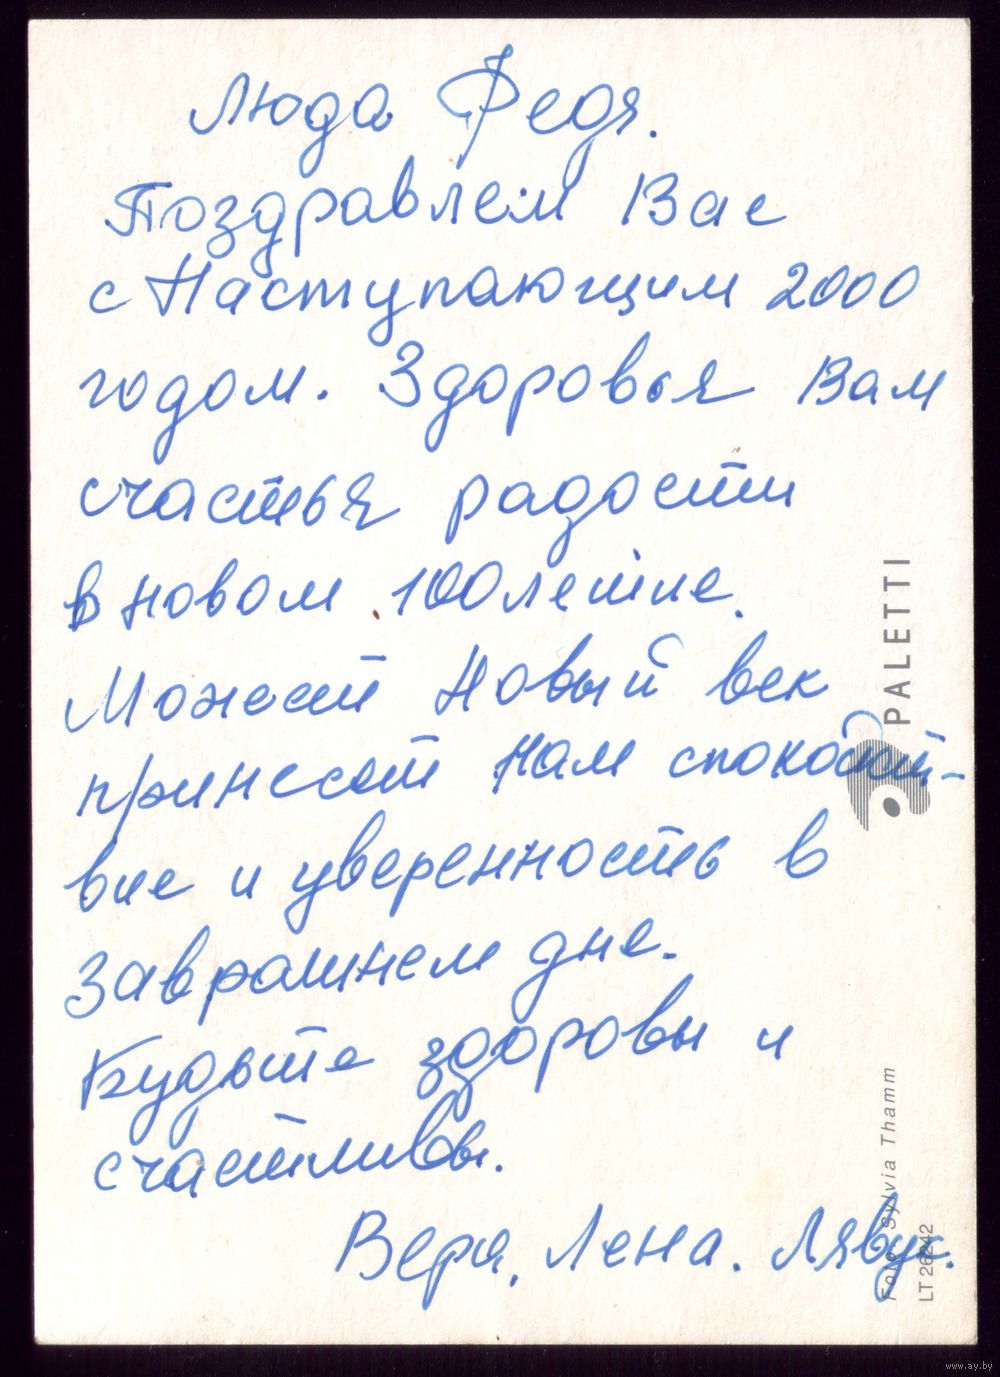 Люда Федя.
Поздравлем Вас
с Наступающим 2000
годом. Здоровья Вам
счастья радости
в новом 100летие.
Может Новый век
принесет нам спокойст-
вие и уверенность в
заврашнем дне.
Будьте здоровы и
счастливы.
Вера, Лена. Лявук.
PALETTI
Foto: Sylvia Thamm
LT 26242
www.ay.by